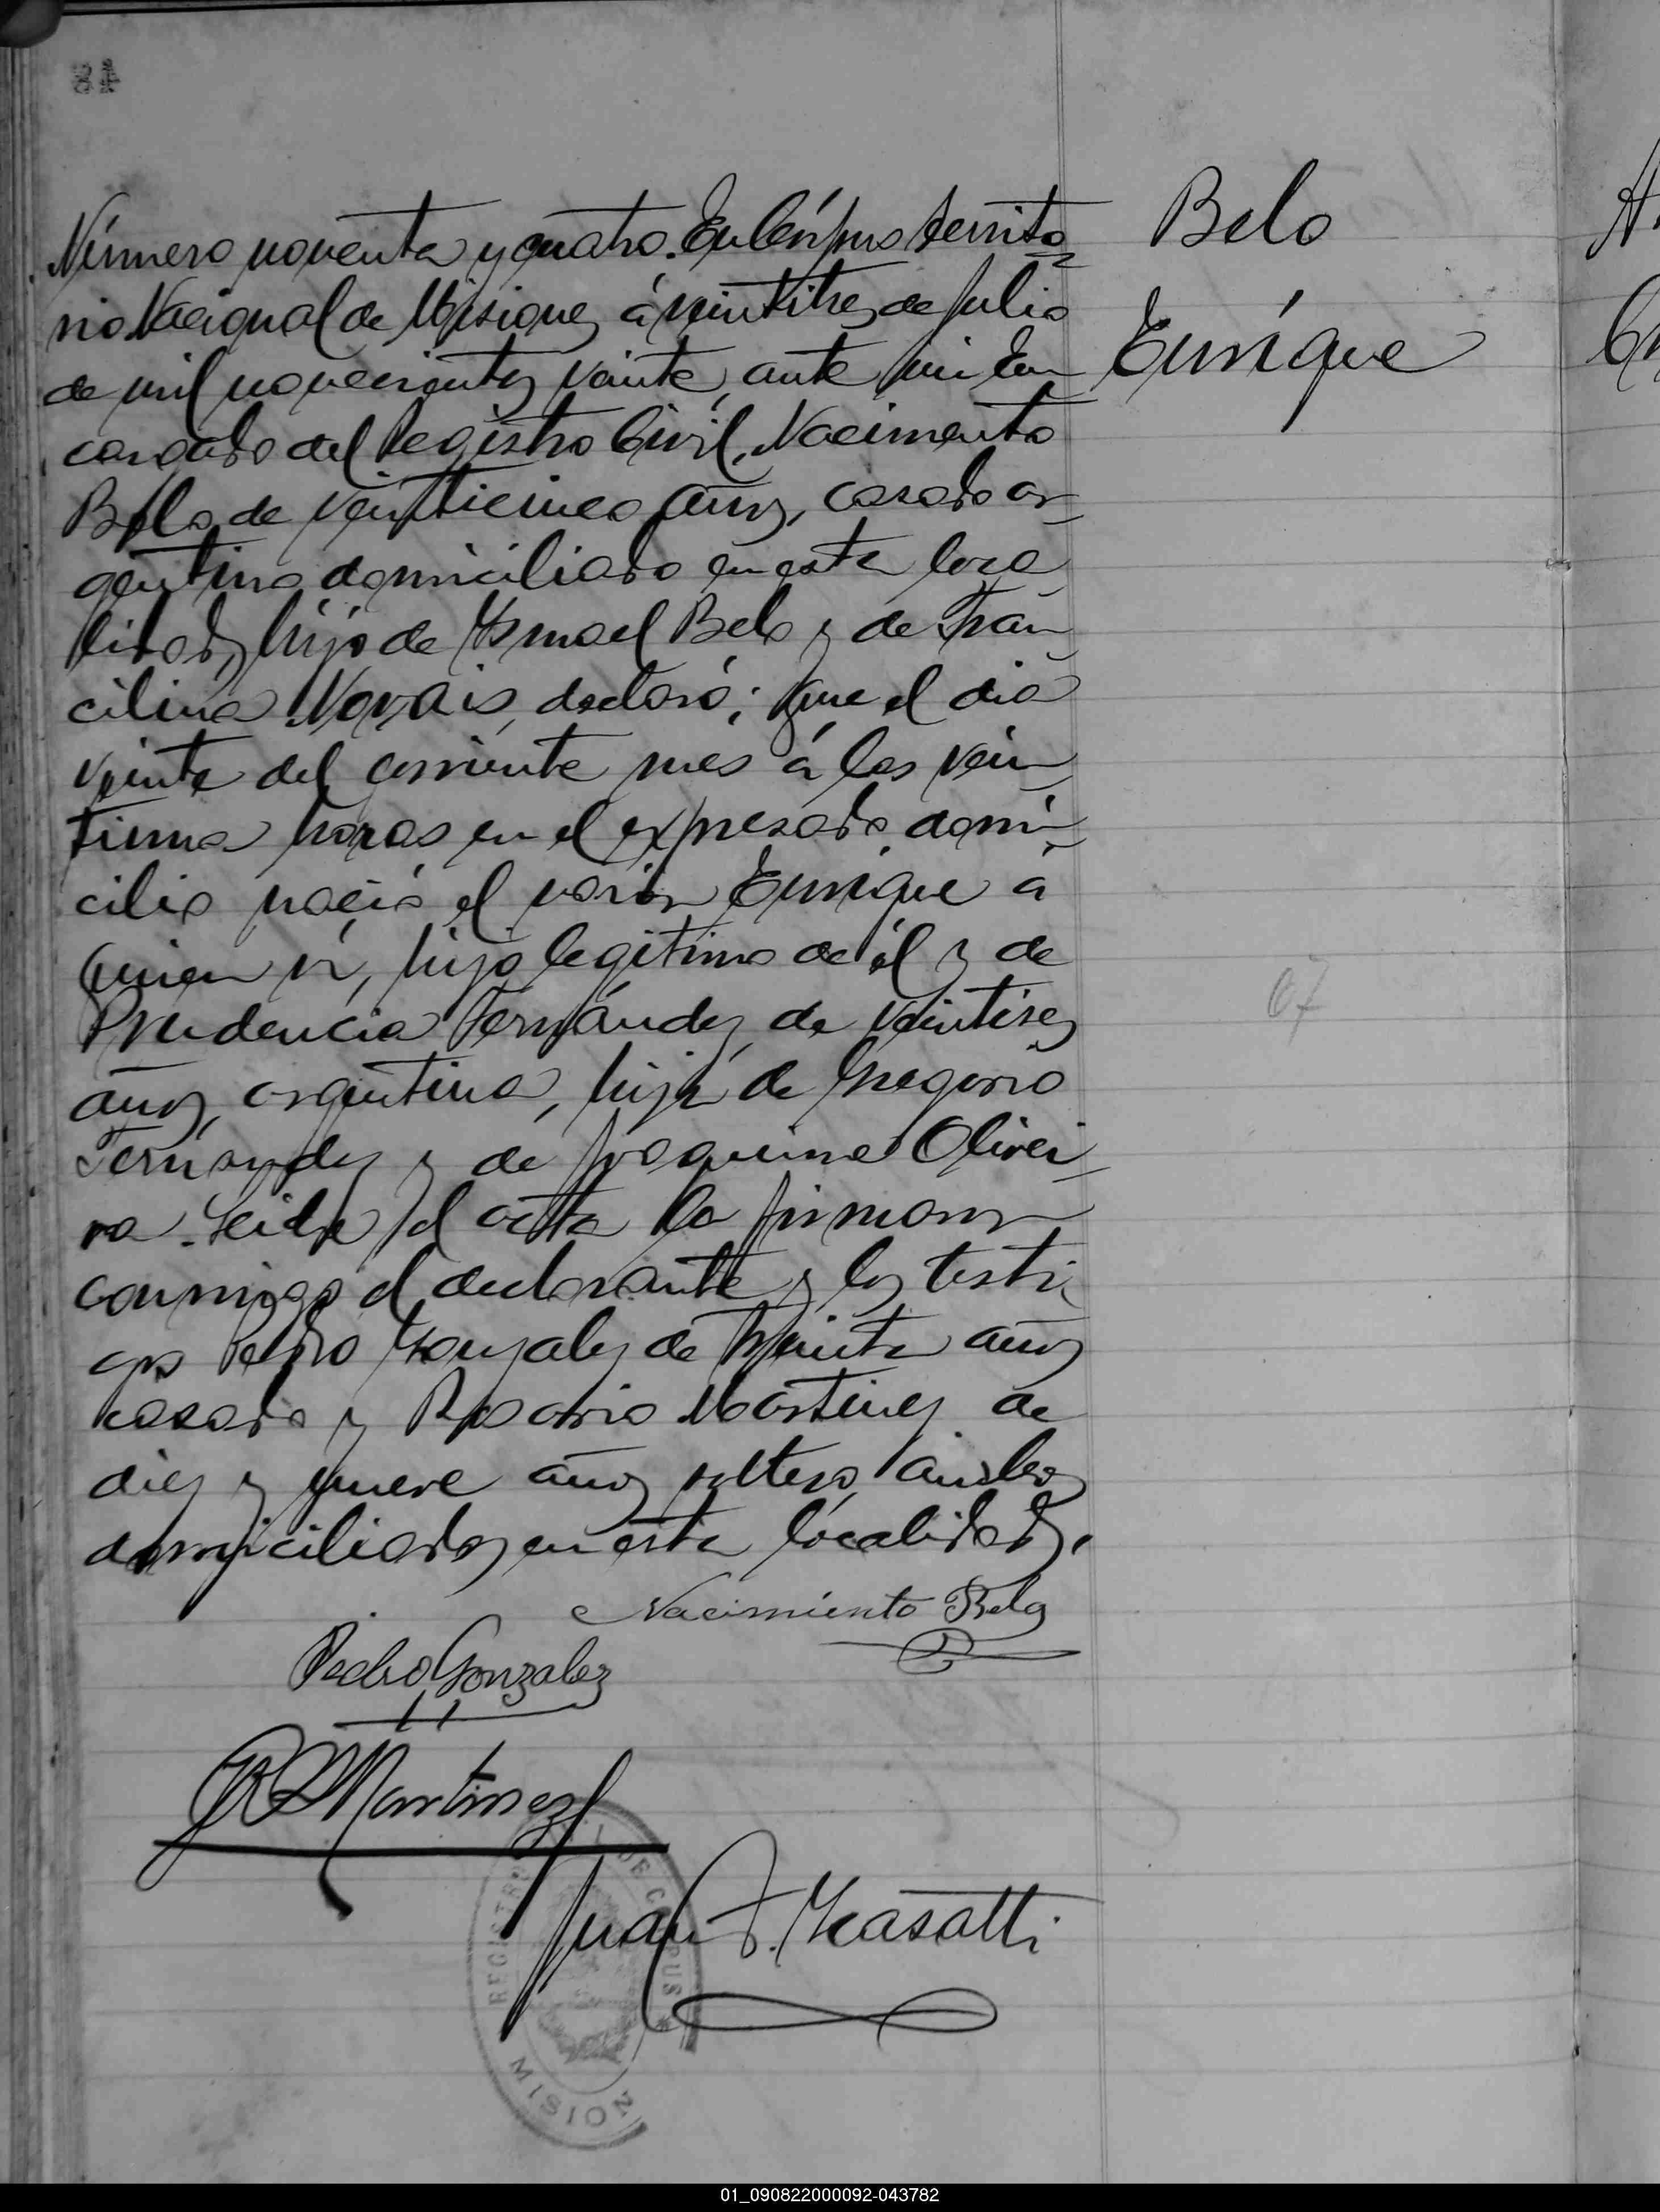 48
Número noventa y cuatro. En Cérpus territo
rio Nacional de Misiones á veintitres de Julio
de mil novecientos veinte, ante mi En
cargado del Registro Civil, Nacimento
Belo, de veinticinco años, casado ar
gentino domiciliado en esta loca
lidad, hijo de Ysmael Belo y de Fran
cilina Novais, declaró; que el dia
veinte del corriente mes á las vein
tiuna horas en el expresado domi
cilio nació el varón Enrique a
quien ví, hijo legítimo de él y de
Prudencia Fernández, de veintiseis
años, argentina, hija de Gregorio
Fernandez y de Joaquina Olivei
ra. Leida el acta la firmaron
conmigo el declarante y los testi
gos Pedro Gonzalez de treinta años
casado y Rosario Martinez de
diez y nueve años soltero, ambos
domiciliados en esta localidad.
Nacimiento Belo
Pedro Gonzalez
R Martinez
Juan F.
REGISTRO CIVIL DE CORPUS
MISIONES
Belo
Enrique
67
01_090822000092-043782